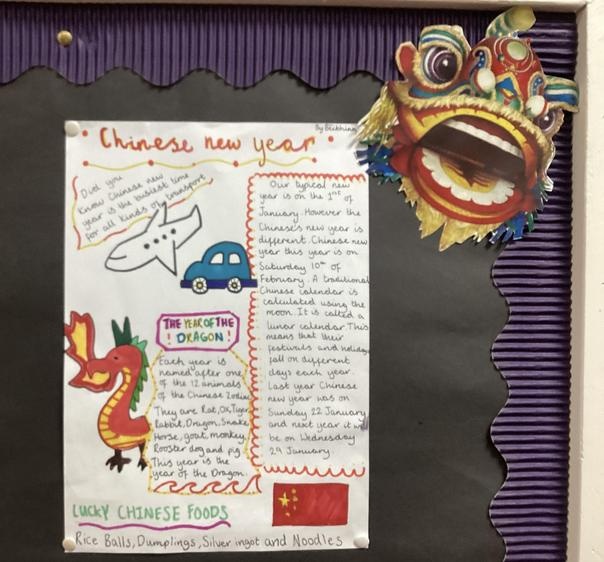 By Beething
Chinese new year
Did you
know Chinese new
year is the busiest time
for all kinds of transport
Our typical new
year is on the 1st of
January. However the
Chinese's new year is
different. Chinese new
year this year is on
Saturday 10th of
February. A traditional
Chinese calendar is
calculated using the
moon. It is called a
lunar calendar. This
means that their
festivals and holidays
fall on different
days each year.
Last year Chinese
new year was on
Sunday 22 January
and next year it will
be on Wednesday
29 January.
THE YEAR OF THE
! DRAGON !
Each year is
named after one
of the 12 animals
of the Chinese Zodiac
They are Rat, Ox, Tiger,
Rabbit, Dragon, Snake
Horse, goat, monkey,
Rooster dog and pig
This year is the
year of the Dragon.
LUCKY CHINESE FOODS
Rice Balls, Dumplings, Silver ingot and Noodles